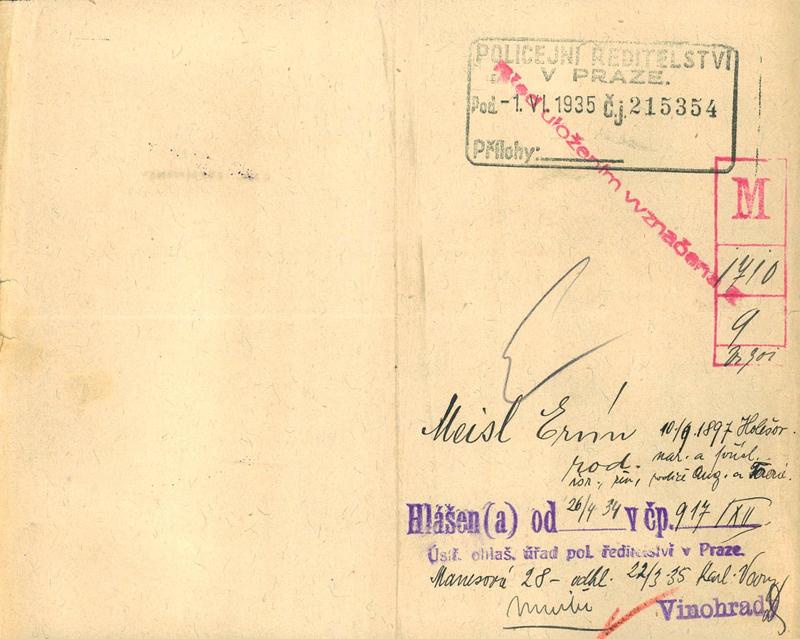 POLICEJNÍ ŘEDITELSTVÍ
V PRAZE.
Pod. -1. VI. 1935 Č.j. 215354
Přílohy:
Před uložením vyznačena
M
1710
9
Meisl Ervín 10/9.1897 Holešov.
rod. nar. a přísl.
isr., rodiče Aug. a
Hlášen(a) od 26/4 34 v čp. 917/XII
Ústř. ohlaš. úřad pol. ředitelství v Praze.
Manesová 28 - odhl. 22/3 35 Karl. Vary
Vinohrady